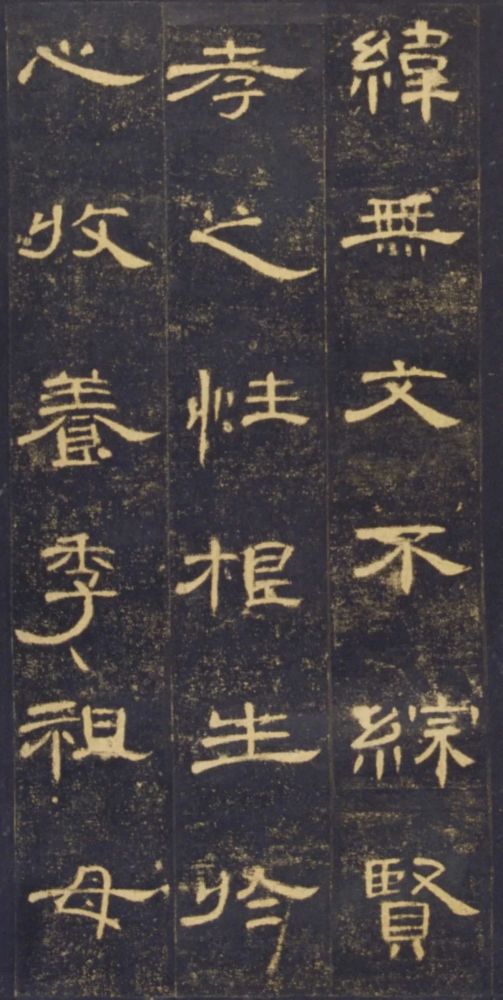 緯無文不綜賢
孝之性根生于
心收養季祖母